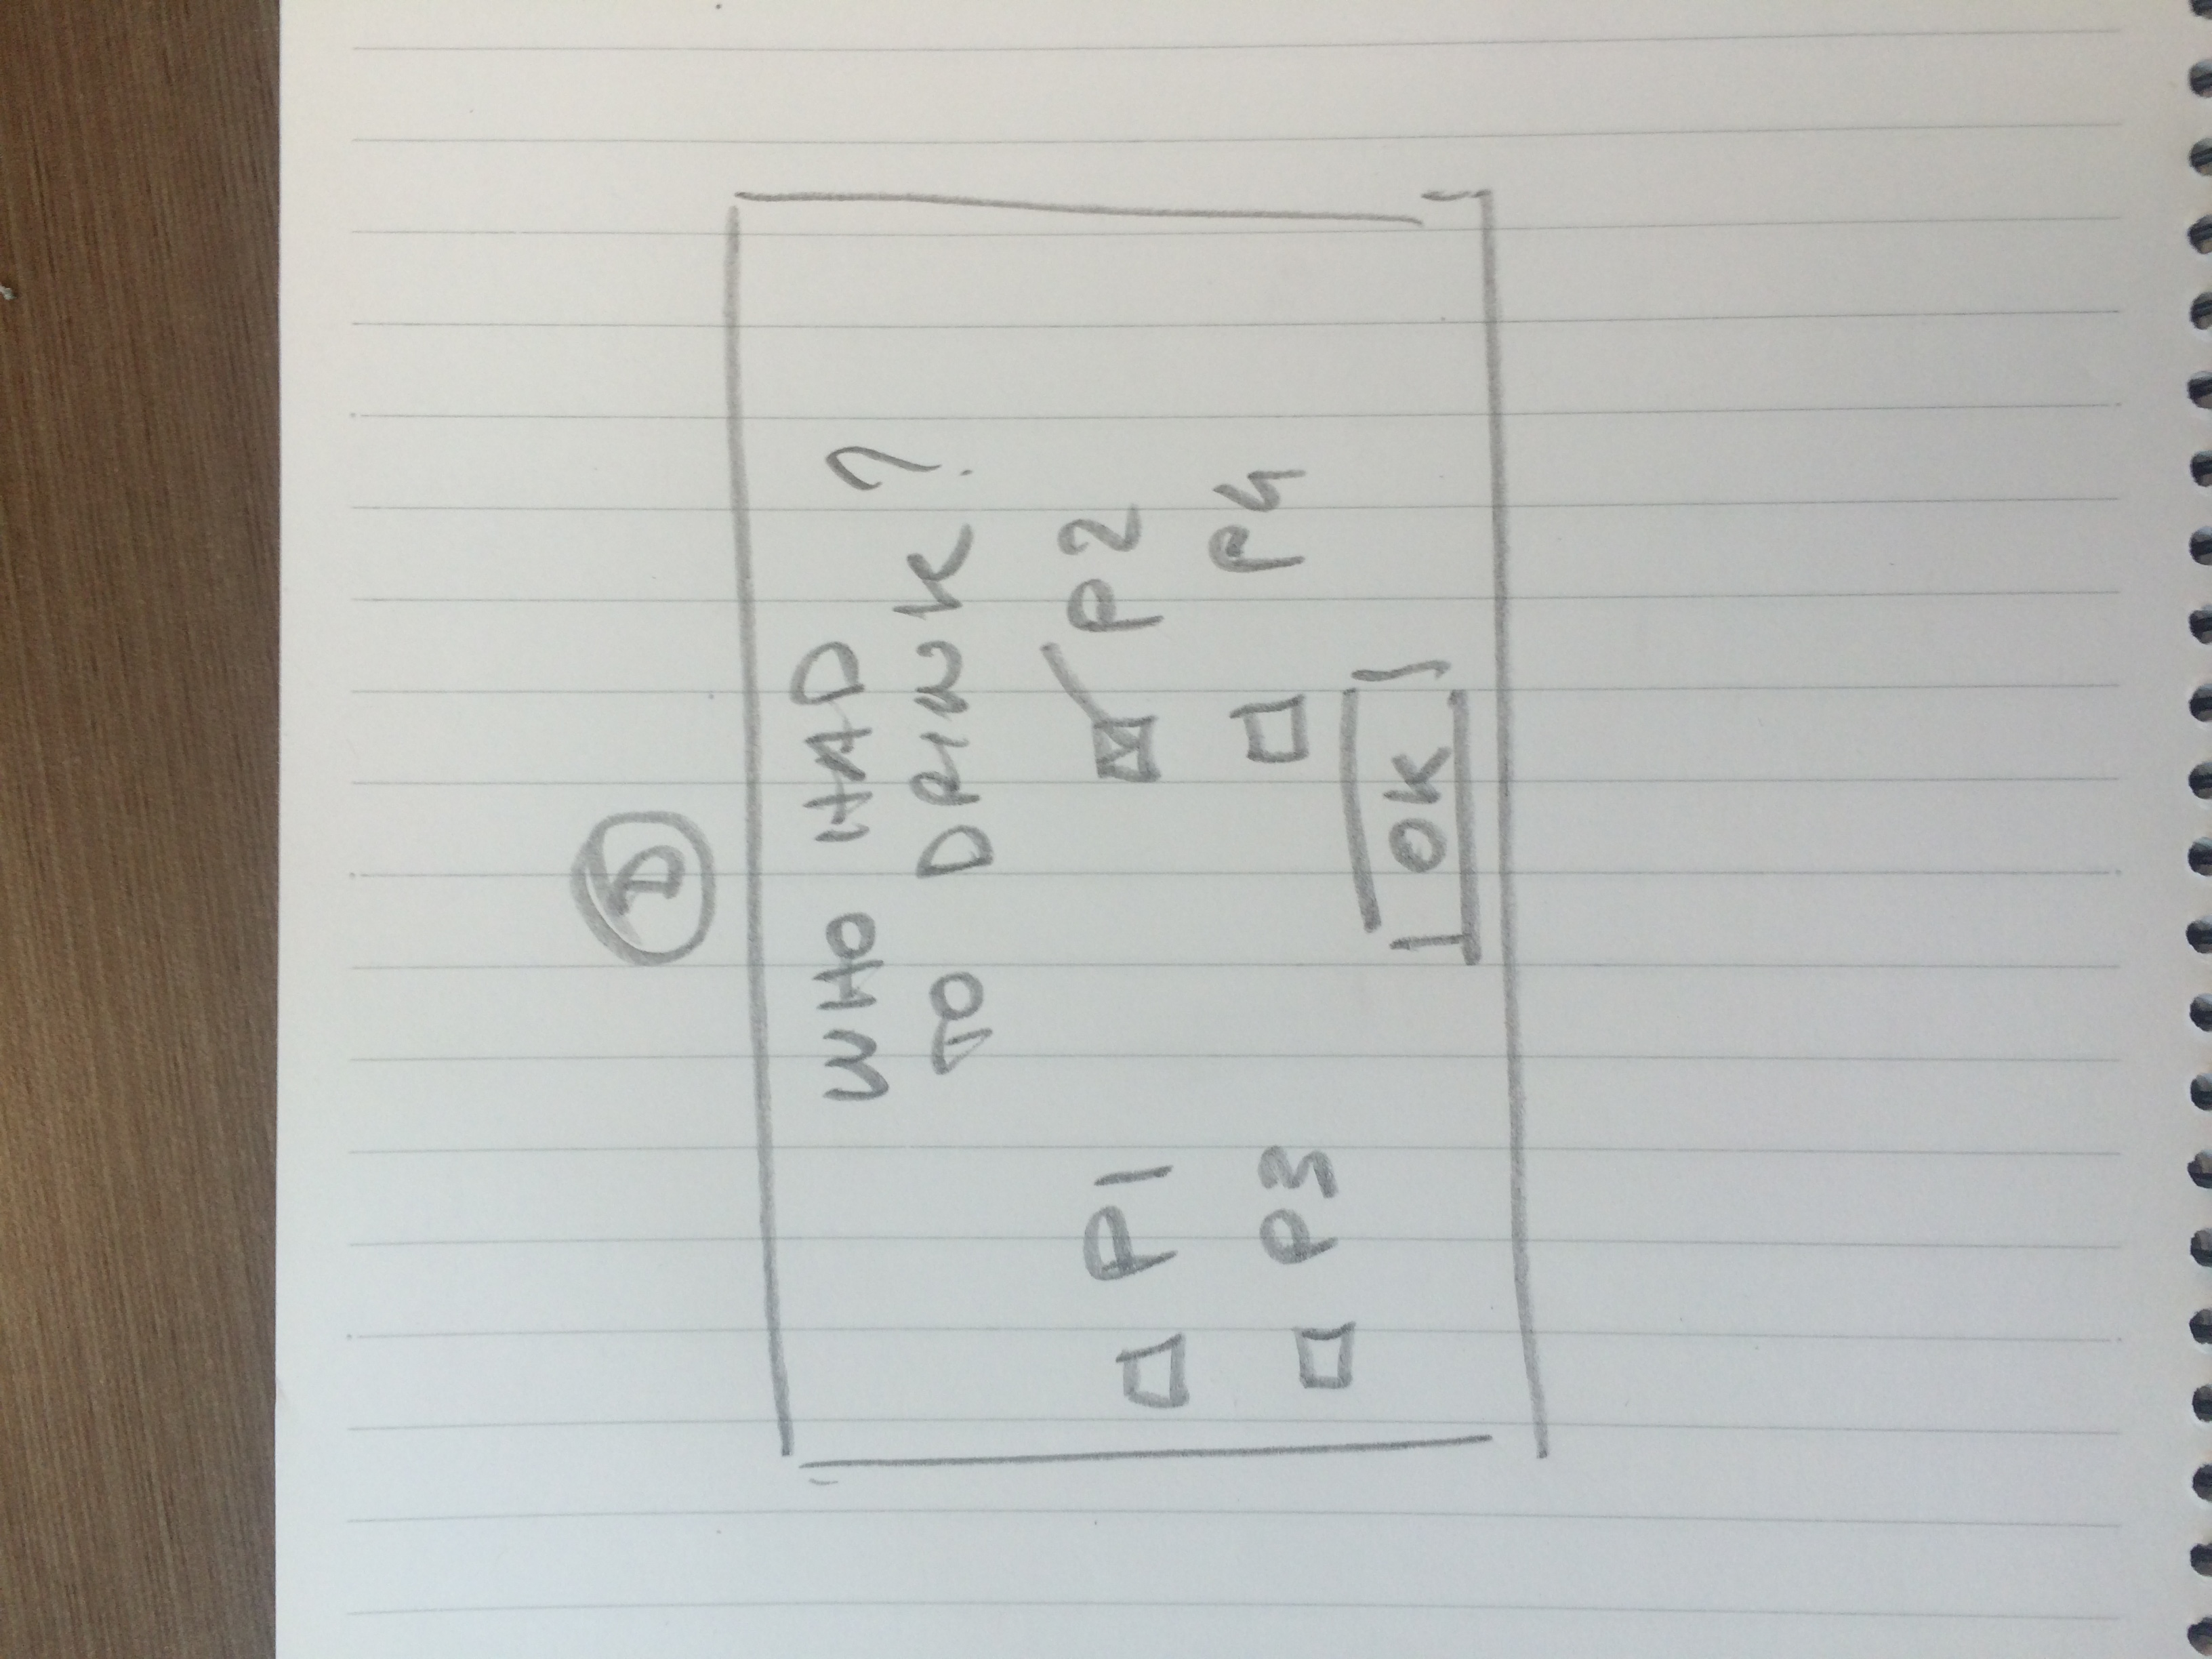 D
WHO HAD
TO DRINK?
P1 P2
P3 P4
OK